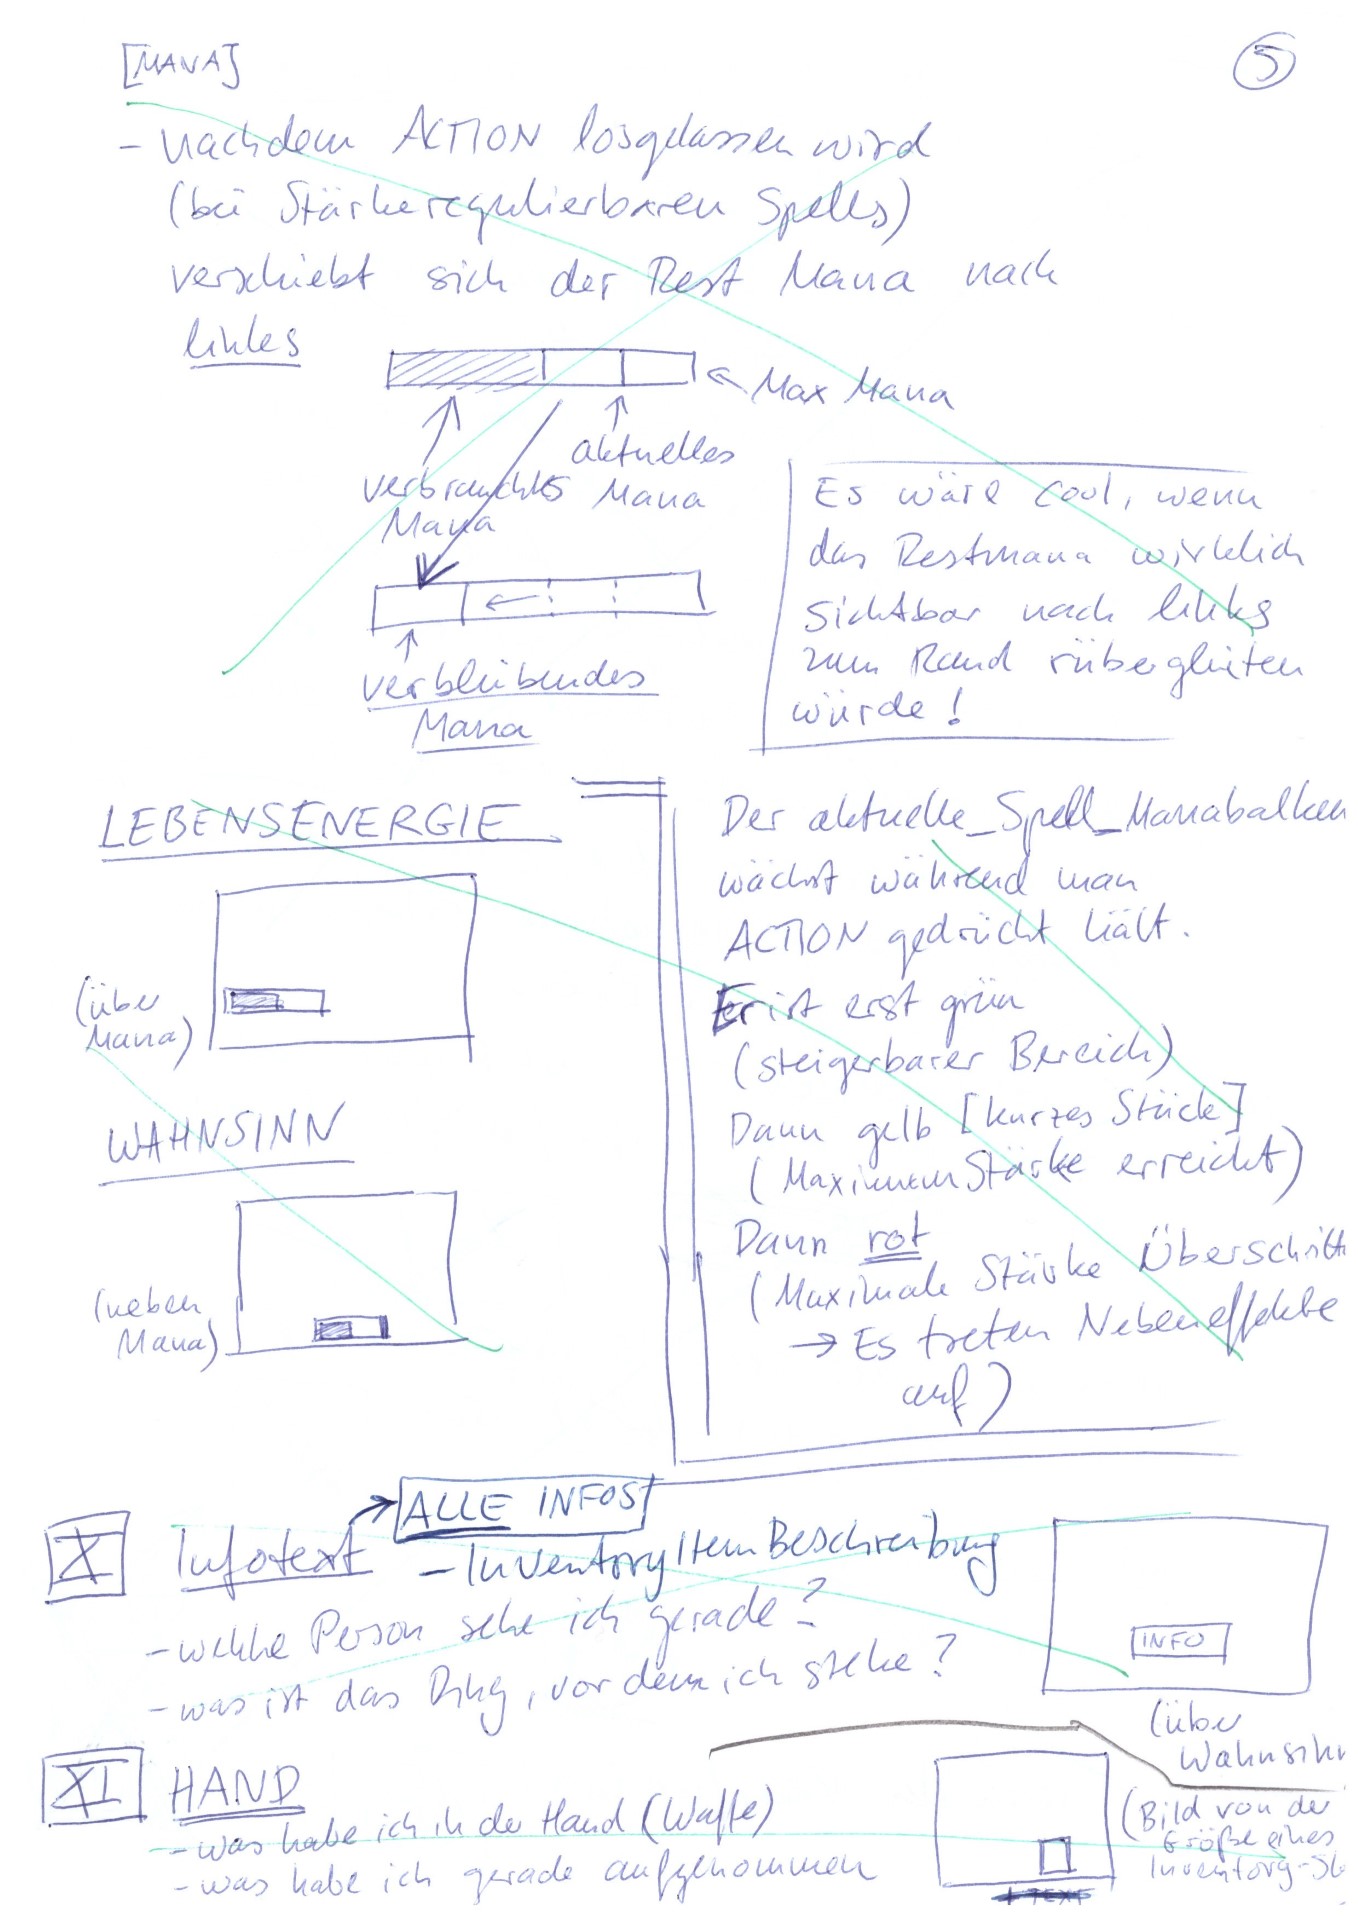 [MANA]
5
- nachdem ACTION losgelassen wird
(bei Stärkeregulierbaren Spells)
verschiebt sich der Rest Mana nach
links
Max Mana
aktuelles
Mana
verbrauchtes
Mana
verbleibendes
Mana
Es wäre cool, wenn
das Restmana wirklich
sichtbar nach links
zum Rand rübergleiten
würde!
LEBENSENERGIE
(über
Mana)
WAHNSINN
(neben
Mana)
Der aktuelle_Spell_Manabalken
wächst während man
ACTION gedrückt hält.
Er ist erst grün
(steigerbarer Bereich)
Dann gelb [kurzes Stück]
(Maximum Stärke erreicht)
Dann rot
(Maximale Stärke Überschritt
→ Es treten Nebeneffekte
auf)
X Infotext → ALLE INFOS
- Inventory Item Beschreibung
- welche Person sehe ich gerade?
- was ist das Ding, vor dem ich stehe?
INFO
(über
Wahnsinn
XI HAND
- was habe ich in der Hand (Waffe)
- was habe ich gerade aufgenommen
(Bild von der
Größe eines
Inventory-Sl